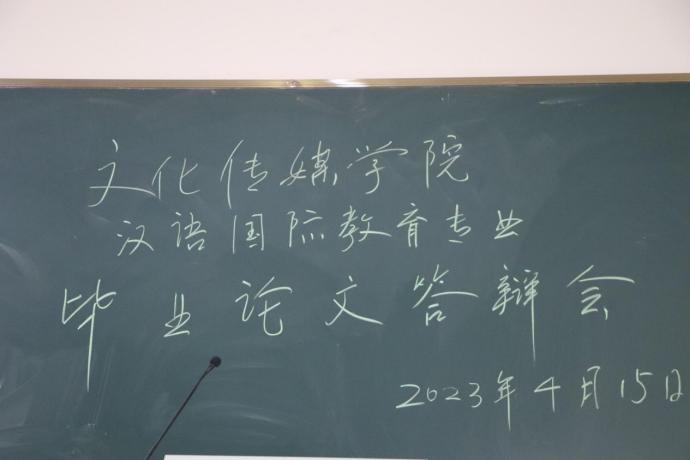 文化传媒学院
汉语国际教育专业
毕业论文答辩会
2023年4月15日